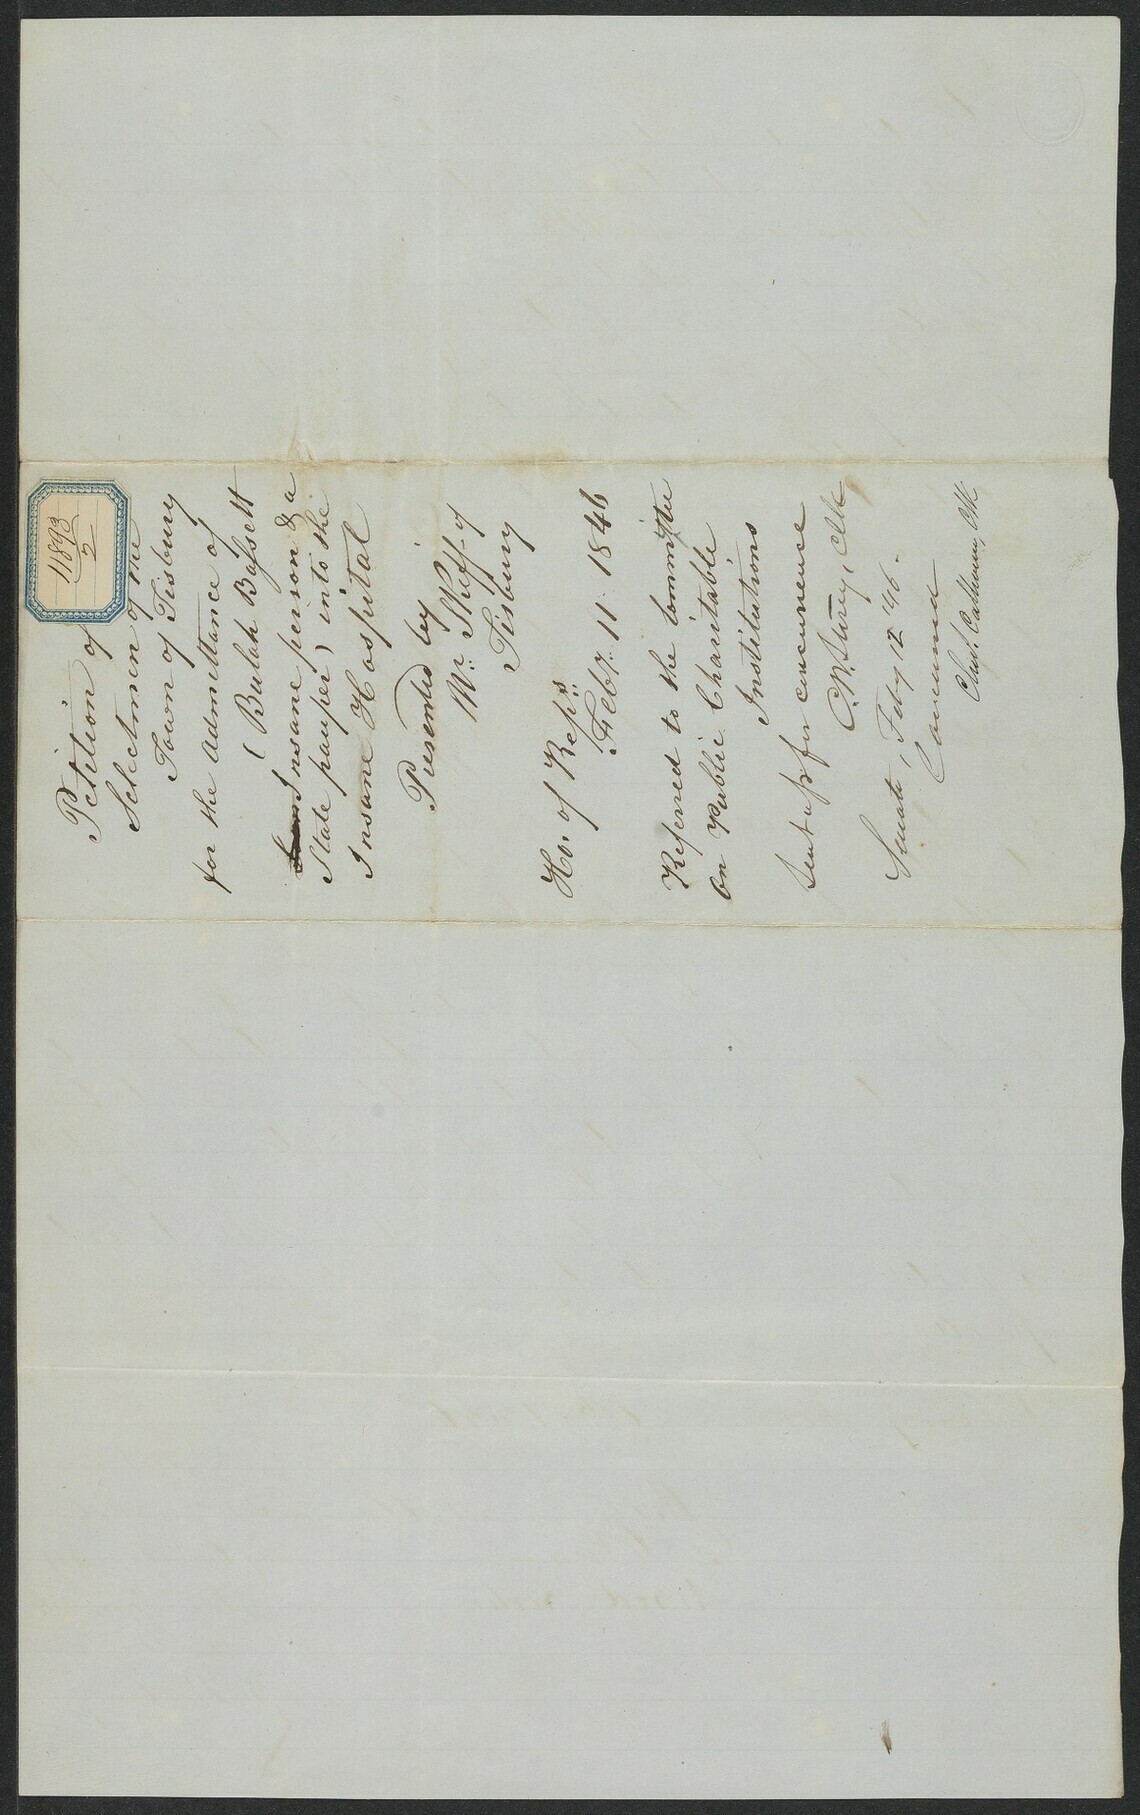 11893
2
Petition of
Selectmen of the
Town of Tisbury
for the admittance of
(Bulah Bassett
Insane person & a
State pauper) into the
Insane Hospital
Presented by
Mr. Skiff of
Tisbury
Ho. of Reps.
Feby. 11. 1846
Referred to the Committee
on Public Charitable
Institutions
Sent up for concurrence
C. W. Storey, Clk
Senate, Feby 12 '46.
Concurred
Chas. Calhoun, Clk.